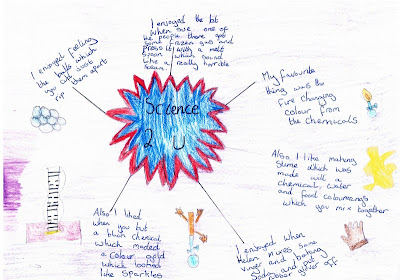 I enjoyed the bit
when sue one of
the people there got
some frozen gas and
press it with a melt
spoon which sound
like a really horrible
scream
I enjoyed feeling
the balls which
you can just
rip them apart
My favourite
thing was the
fire changing
colour from
the chemicals
Science
2 U
Also I like making
slime which was
made will a
chemical, water
and food colourings
which you mix together
Also I liked
when you but
a blush chemical
which maded
a colour acid
which looked
like sparkles
I enjoyed when
Helen mixes some
vinger and baking
soda and
goes off